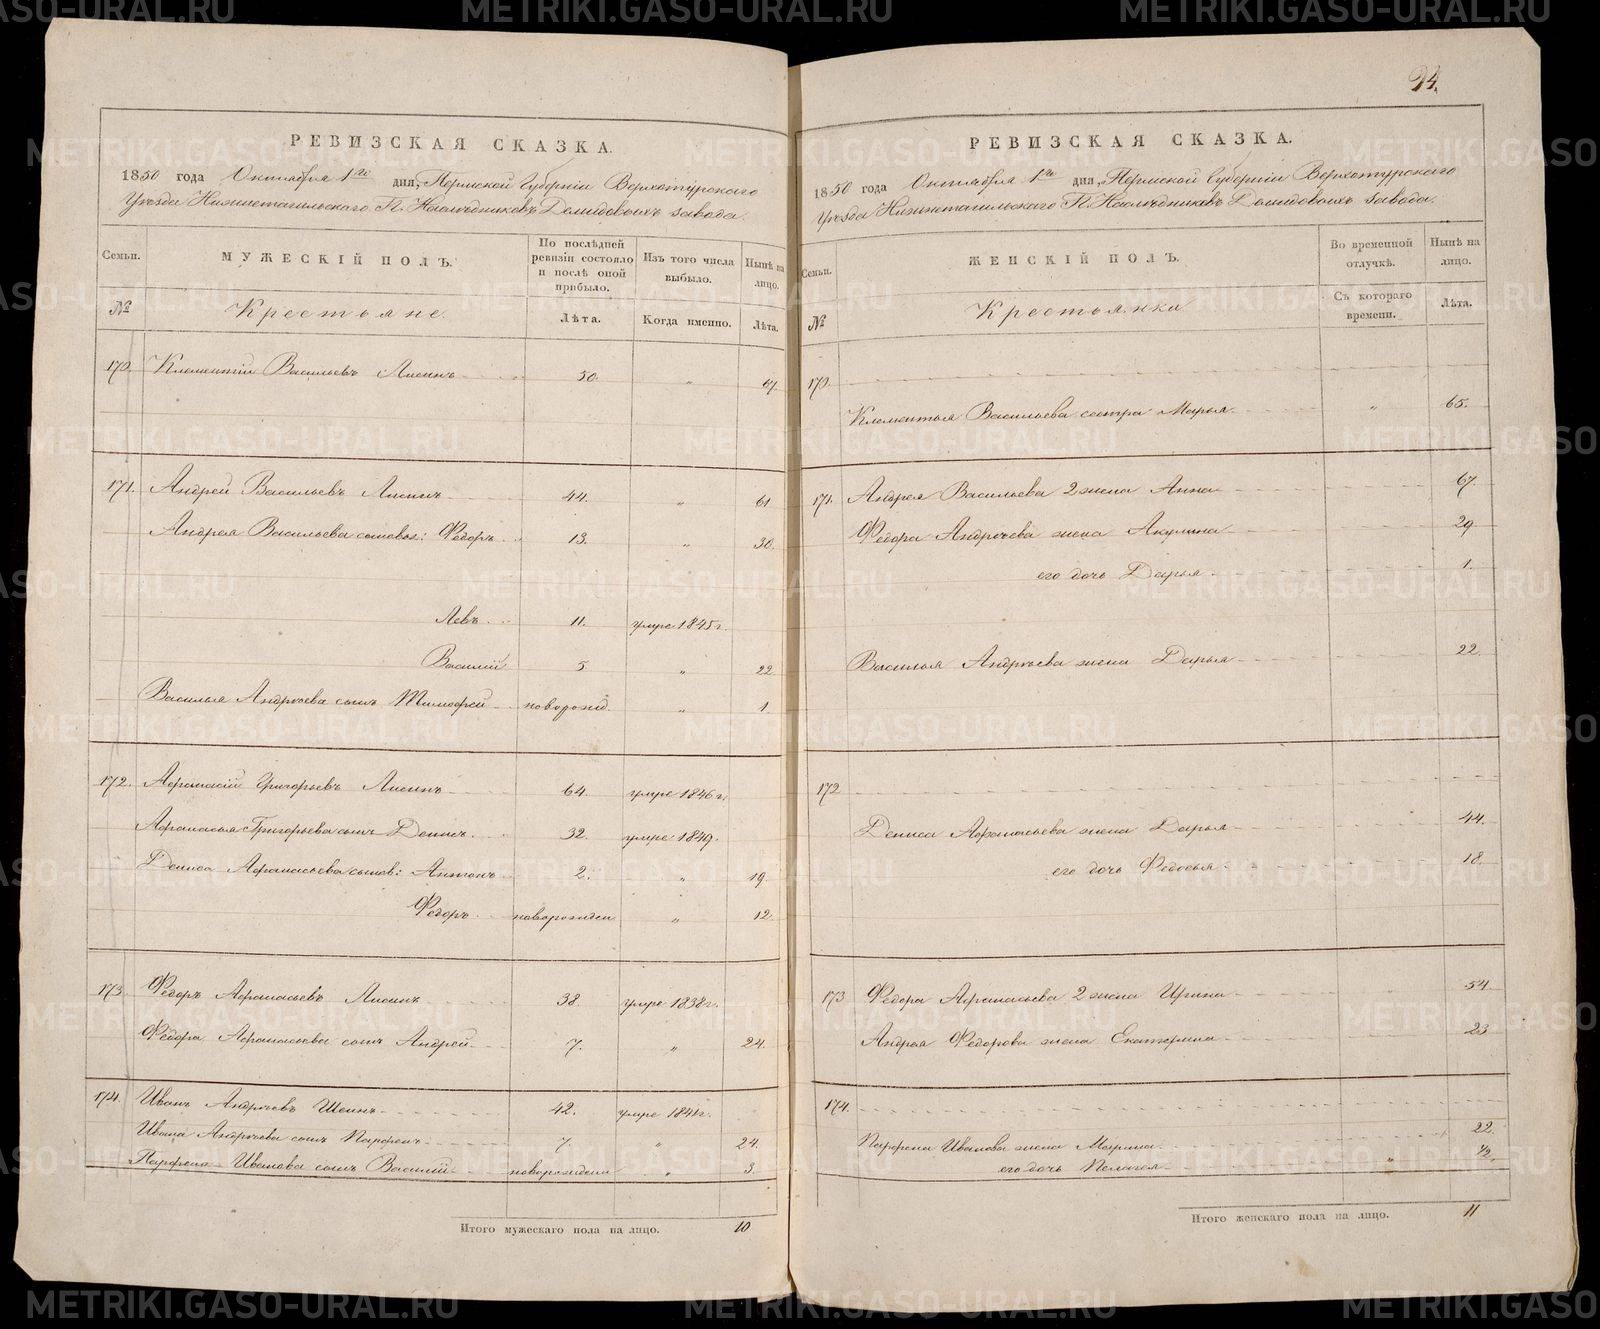 94.
РЕВИЗСКАЯ СКАЗКА.
1850 года Октября 1го дня, Пермской Губернии Верхотурскаго
Уезда Нижнетагильскаго Г. Наследниковъ Демидовыхъ завода.
Семьи. МУЖЕСКІЙ ПОЛЪ. По послѣдней ревизіи состояло и послѣ оной прибыло. Изъ того числа выбыло. Нынѣ на лицо.
№ Крестьяне. Лѣта. Когда именно. Лѣта.
170. Клементій Васильевъ Лисинъ 50. " 67.
171. Андрей Васильевъ Лисинъ 44. " 61
Андрея Васильева сыновья: Федоръ 13. " 30.
Левъ 11. умре 1845 г.
Василій 5 " 22
Василья Андреева сынъ Тимофей новорожд. " 1.
172. Афанасій Григорьевъ Лисинъ 64. умре 1846 г.
Афанасья Григорьева сынъ Денисъ 32. умре 1849.
Дениса Афанасьева сынов: Антонъ 2. " 19.
Федоръ новорожден " 12.
173 Федоръ Афанасьевъ Лисинъ 38. умре 1838 г.
Федора Афанасьева сынъ Андрей 7. " 24.
174. Иванъ Андреевъ Шеинъ 42. умре 1841 г.
Ивана Андреева сынъ Парфенъ 7. " 24.
Парфена Иванова сынъ Василій новорожден " 3.
Итого мужескаго пола на лицо. 10
РЕВИЗСКАЯ СКАЗКА.
1850 года Октября 1го дня, Пермской Губернии Верхотурскаго
Уезда Нижнетагильскаго Г. Наследниковъ Демидовыхъ завода.
Семьи. ЖЕНСКІЙ ПОЛЪ. Во временной отлучкѣ. Нынѣ на лицо.
№ Крестьянки Съ котораго времени. Лѣта.
170.
Клементья Васильева сестра Марья " 65.
171. Андрея Васильева 2 жена Анна 67.
Федора Андреева жена Акулина 29
его дочь Дарья 1.
Василья Андреева жена Дарья 22.
172
Дениса Афанасьева жена Дарья 44.
его дочь Федосья 18.
173 Федора Афанасьева 2 жена Ирина 54.
Андрея Федорова жена Екатерина 23
174.
Парфена Иванова жена Марина 22.
его дочь Пелагея " 1/2.
Итого женскаго пола на лицо. 11
METRIKI.GASO-URAL.RU